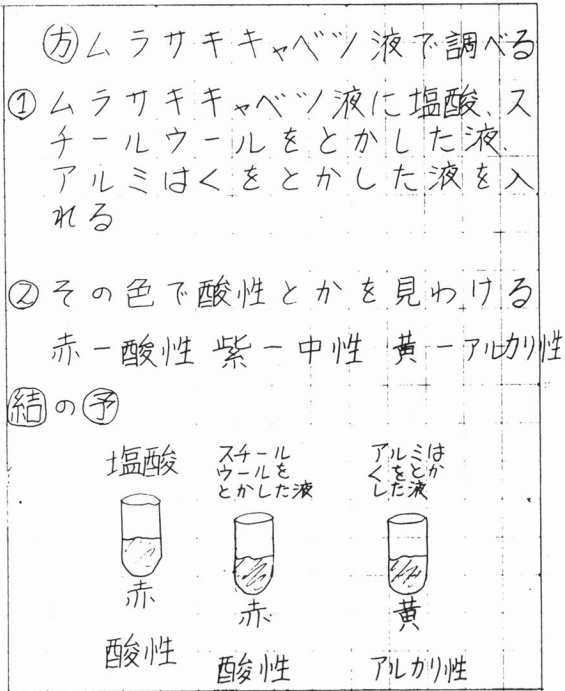 方ムラサキキャベツ液で調べる
①ムラサキキャベツ液に塩酸、ス
チールウールをとかした液、
アルミはくをとかした液を入
れる
②その色で酸性とかを見わける
赤ー酸性 紫ー中性 黄ーアルカリ性
結の予
塩酸
スチール
ウールを
とかした液
アルミは
くをとか
した液
赤
赤
黄
酸性
酸性
アルカリ性